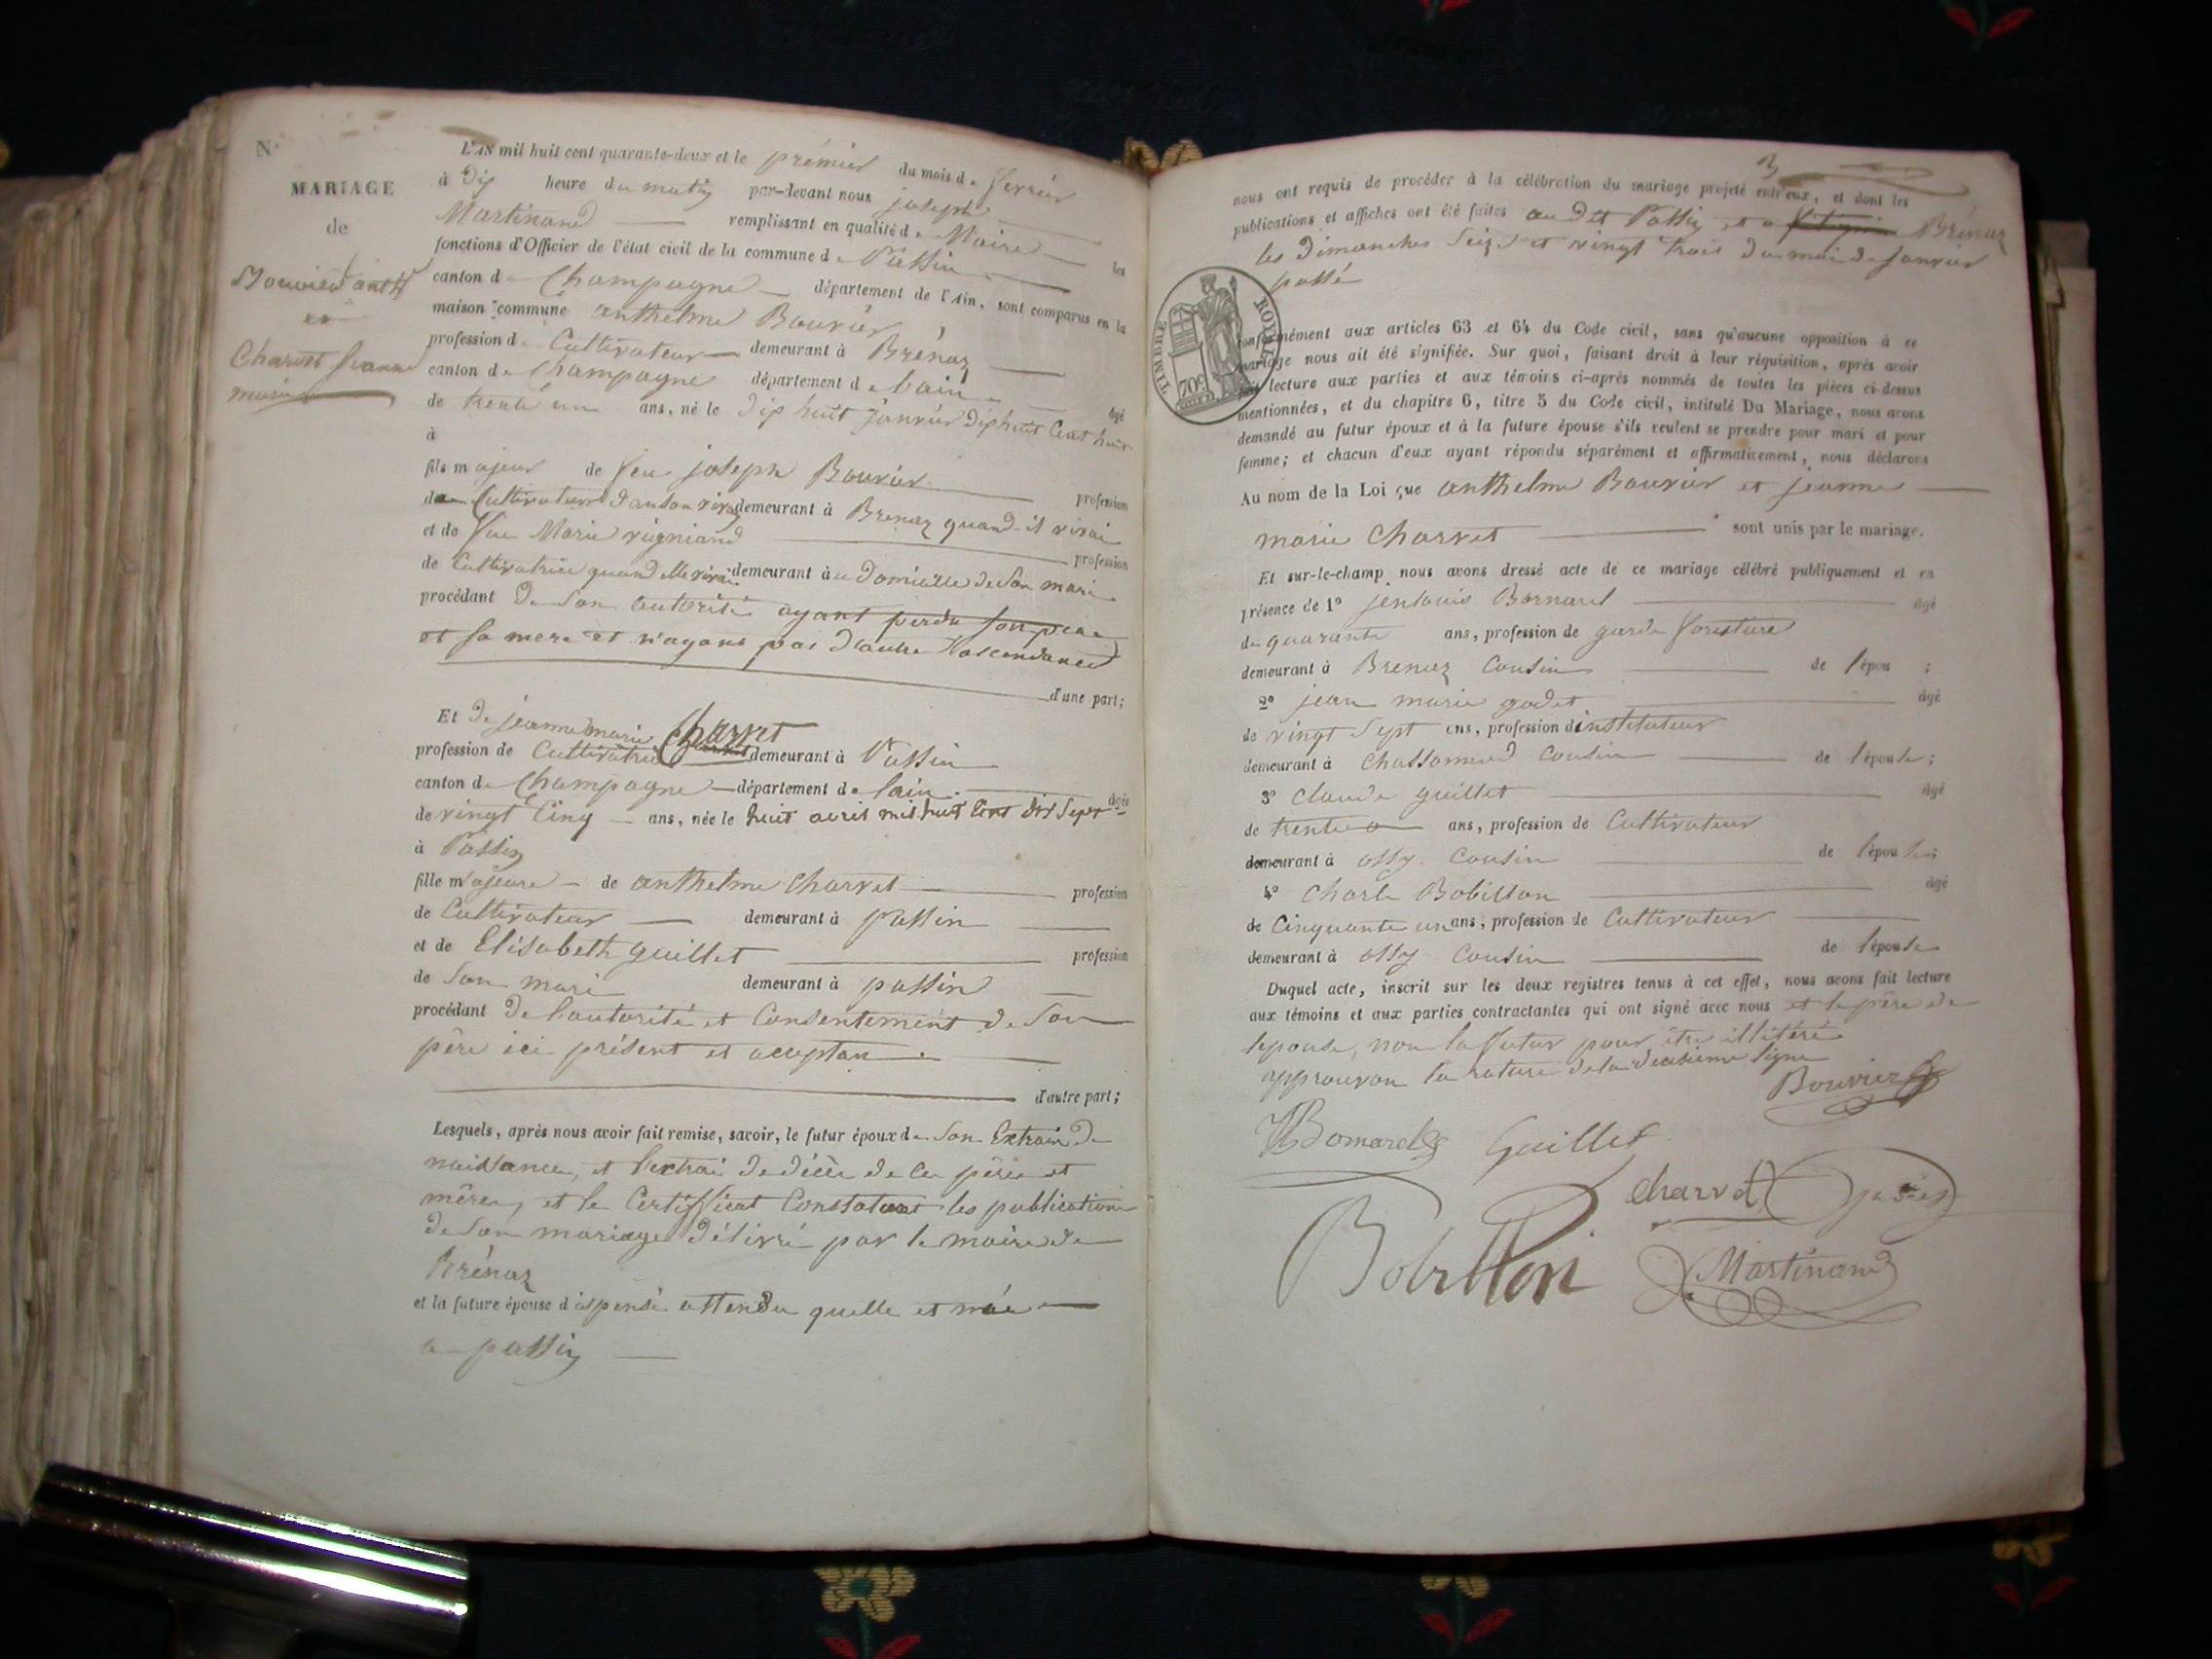 N°
MARIAGE
de
Bouvier anth
et
Charvet Jeanne
marie
L'AN mil huit cent quarante-deux et le prémier du mois de fevrier
à dix heure du matin par-devant nous joseph
Martinand remplissant en qualité de Maire les
fonctions d'Officier de l'état civil de la commune de Passin
canton de Champagne département de l'Ain, sont comparus en la
maison commune anthelme Bouvier,
profession de Cultivateur demeurant à Brénaz
canton de Champagne département de lain âgé
de trente un ans, né le dix huit janvier dix huit cent huit
à
fils majeur de feu joseph Bouvier profession
de Cultivateur demeurant à Brenaz quand il vivai
et de feue Marie profession
de Cultivatrice quand elle vivai demeurant à u domicille de son mari
procédant de son autorité ayant perdu son pere
et sa mere et n'ayant pas d'autre ascendance
d'une part;
Et de jeanne marie Charvet
profession de Cultivatrice demeurant à Passin
canton de Champagne département de lain âgée
de vingt cinq ans, née le huit avril mil huit cent dix sept
à Passin
fille majeure de anthelme Charvet profession
de Cultivateur demeurant à passin
et de Elisabeth guillet profession
de son mari demeurant à passin
procédant de l'autorité et consentement de son
père ici présent et aceptan.
d'autre part;
Lesquels, après nous avoir fait remise, savoir, le futur époux de son Extrait de
naissance, et l'extrai de décès de ces pères et
mères, et le Certifficat Constatant les publication
de son mariage délivré par le maire de
Brénaz
et la future épouse dispensé attendu quelle et née
a passin
3
nous ont requis de procéder à la célébration du mariage projeté entr'eux, et dont les
publications et affiches ont été faites au dit Passin et a Brénaz
les dimanches seize et vingt trois du moi de janvier
passé
TIMBRE ROYAL
70c
conformément aux articles 63 et 64 du Code civil, sans qu'aucune opposition à ce
mariage nous ait été signifiée. Sur quoi, faisant droit à leur réquisition, après avoir
lecture aux parties et aux témoins ci-après nommés de toutes les pièces ci-dessus
mentionnées, et du chapitre 6, titre 5 du Code civil, intitulé Du Mariage, nous avons
demandé au futur époux et à la future épouse s'ils veulent se prendre pour mari et pour
femme; et chacun d'eux ayant répondu séparément et affirmativement, nous déclarons
Au nom de la Loi que anthelme Bouvier et jeanne
marie Charvet sont unis par le mariage.
Et sur-le-champ nous avons dressé acte de ce mariage célébré publiquement et en
présence de 1° jenlouis Bornarel âgé
de quarante ans, profession de garde forestier
demeurant à Brenaz Cousin de l'épou ;
2° jean marie godet âgé
de vingt sept ans, profession dinstituteur
demeurant à Cousin de l'épouse;
3° claude guillet âgé
de trente ans, profession de Cultivateur
demeurant à ossy Cousin de l'épouse;
4° Charle Bobillon âgé
de Cinquante un ans, profession de Cultivateur
demeurant à ossy Cousin de l'épouse
Duquel acte, inscrit sur les deux registres tenus à cet effet, nous avons fait lecture
aux témoins et aux parties contractantes qui ont signé avec nous et le père de
lepouse, non la futur pour être illitéré
approuvon la rature de la deuxieme ligne
Bouvier
Guillet
Charvet
Bobillon
Martinand